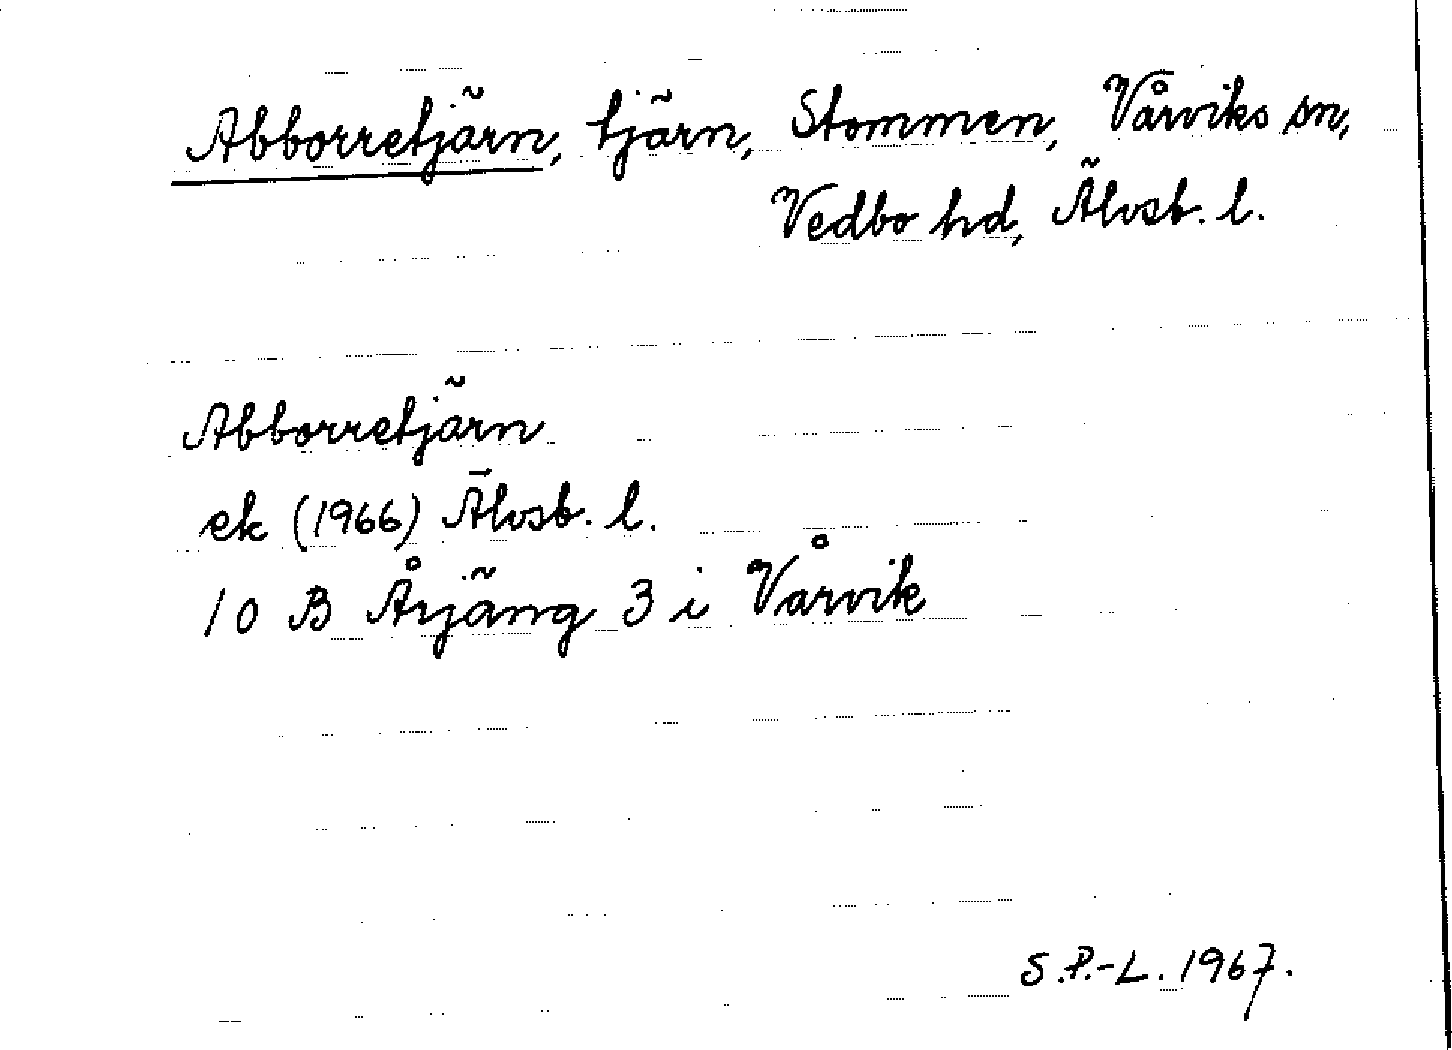 Abborretjärn, tjärn, Stommen, Vårviks sn,
Vedbo hd, Älvsb. l.
Abborretjärn
ek (1966) Älvsb. l.
10 B Årjäng 3 i Vårvik
S.P.-L. 1967.